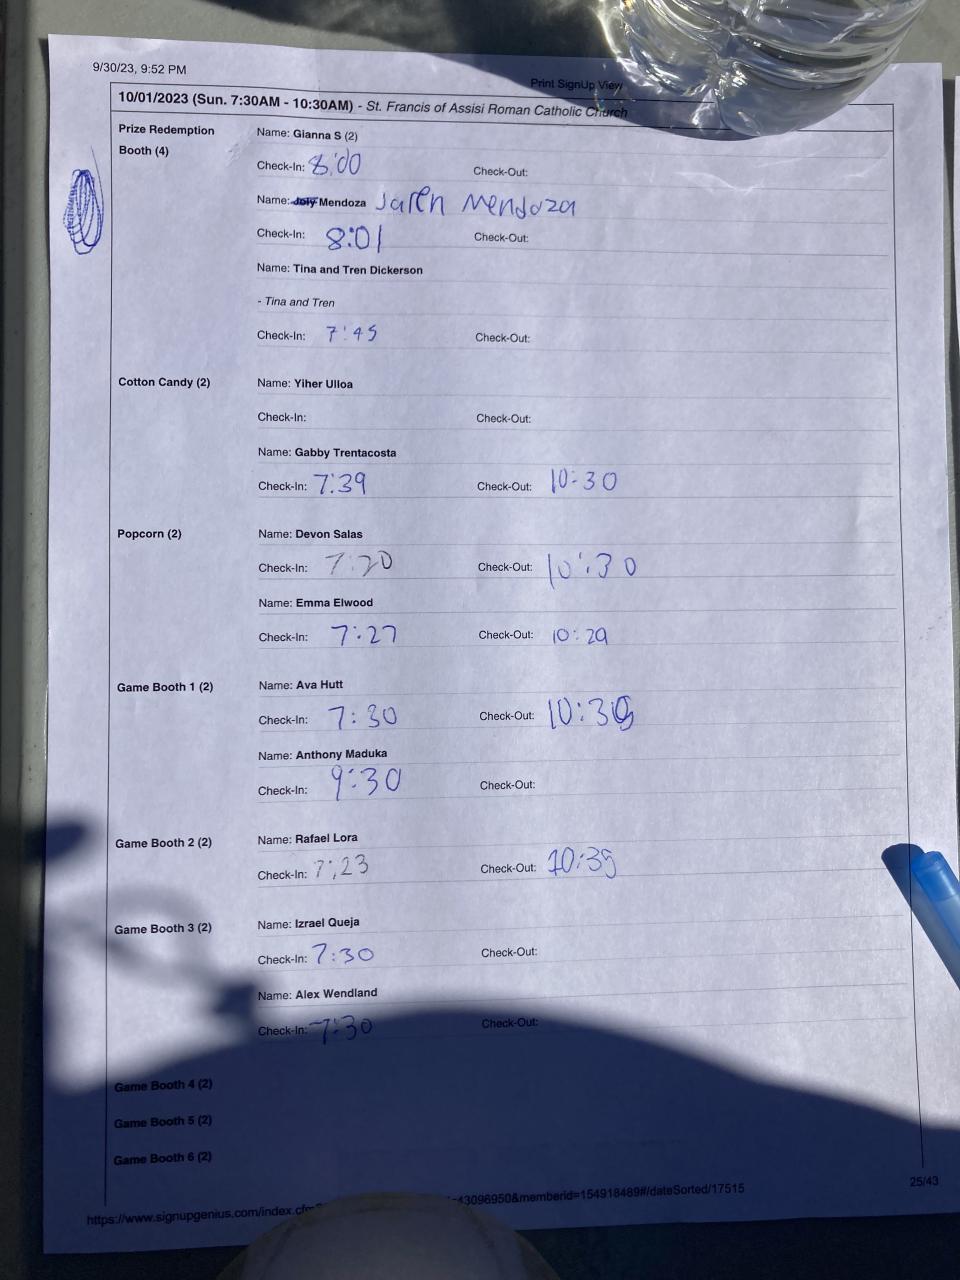 9/30/23, 9:52 PM
Print SignUp View
10/01/2023 (Sun. 7:30AM - 10:30AM) - St. Francis of Assisi Roman Catholic Church
Prize Redemption Booth (4)
Name: Gianna S (2)
Check-In: 8:00 Check-Out:
Name: Mendoza Jaren Mendoza
Check-In: 8:01 Check-Out:
Name: Tina and Tren Dickerson
- Tina and Tren
Check-In: 7:45 Check-Out:
Cotton Candy (2) Name: Yiher Ulloa
Check-In: Check-Out:
Name: Gabby Trentacosta
Check-In: 7:39 Check-Out: 10:30
Popcorn (2) Name: Devon Salas
Check-In: 7:20 Check-Out: 10:30
Name: Emma Elwood
Check-In: 7:27 Check-Out: 10:29
Game Booth 1 (2) Name: Ava Hutt
Check-In: 7:30 Check-Out:
Name: Anthony Maduka
Check-In: 9:30 Check-Out:
Game Booth 2 (2) Name: Rafael Lora
Check-In: 7:23 Check-Out: 10:35
Game Booth 3 (2) Name: Izrael Queja
Check-In: 7:30 Check-Out:
Name: Alex Wendland
Check-In: 7:30 Check-Out:
Game Booth 4 (2)
Game Booth 5 (2)
Game Booth 6 (2)
https://www.signupgenius.com/index.cfm 43096950&memberid=154918489#/dateSorted/17515
25/43